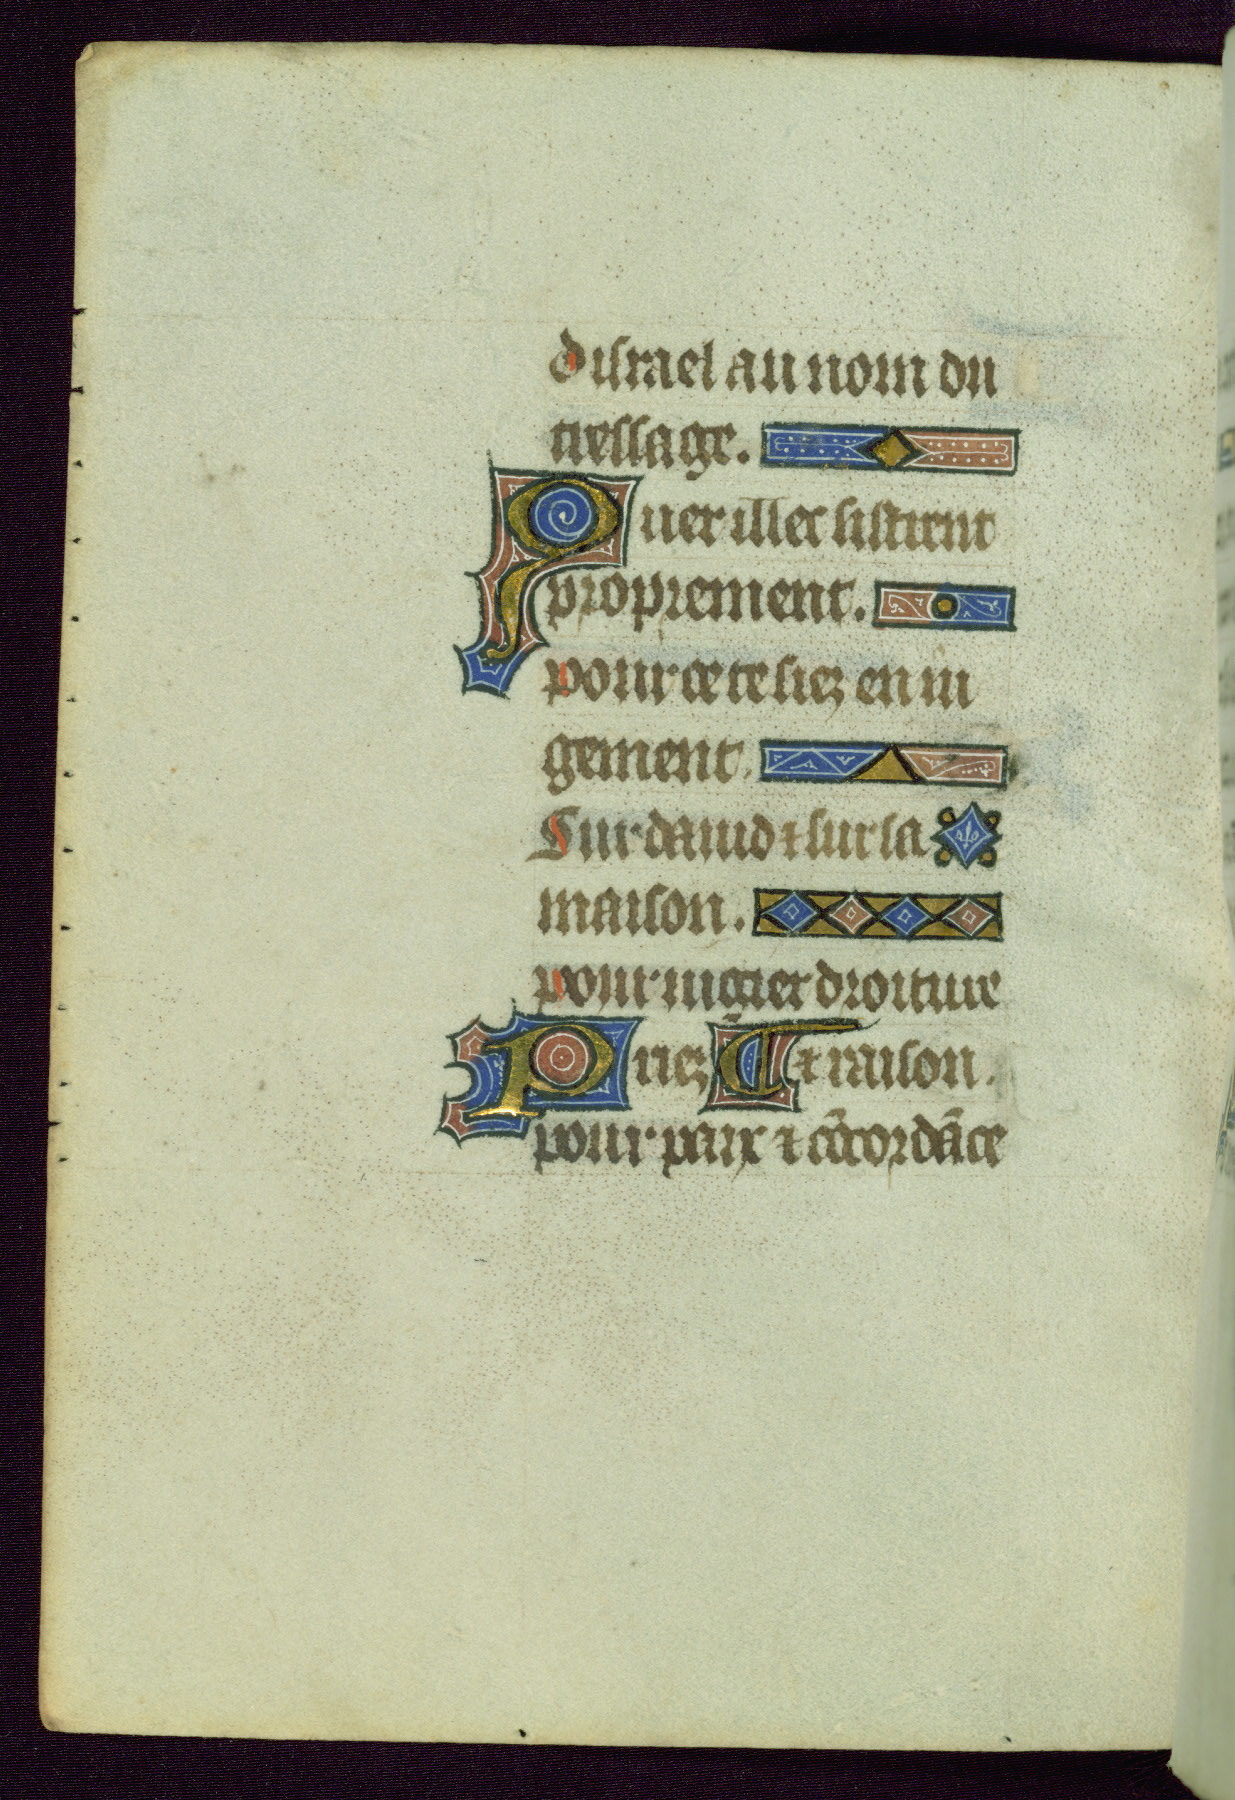 disrael au nom du
tressage.
Quer illec sistrent
proprement.
pour ce te siez en iu
gement.
Sur dauid ⁊ sur la
maison.
pour iugier droiture
Priez ¶ ⁊ raison.
pour paix ⁊ cõcordãce